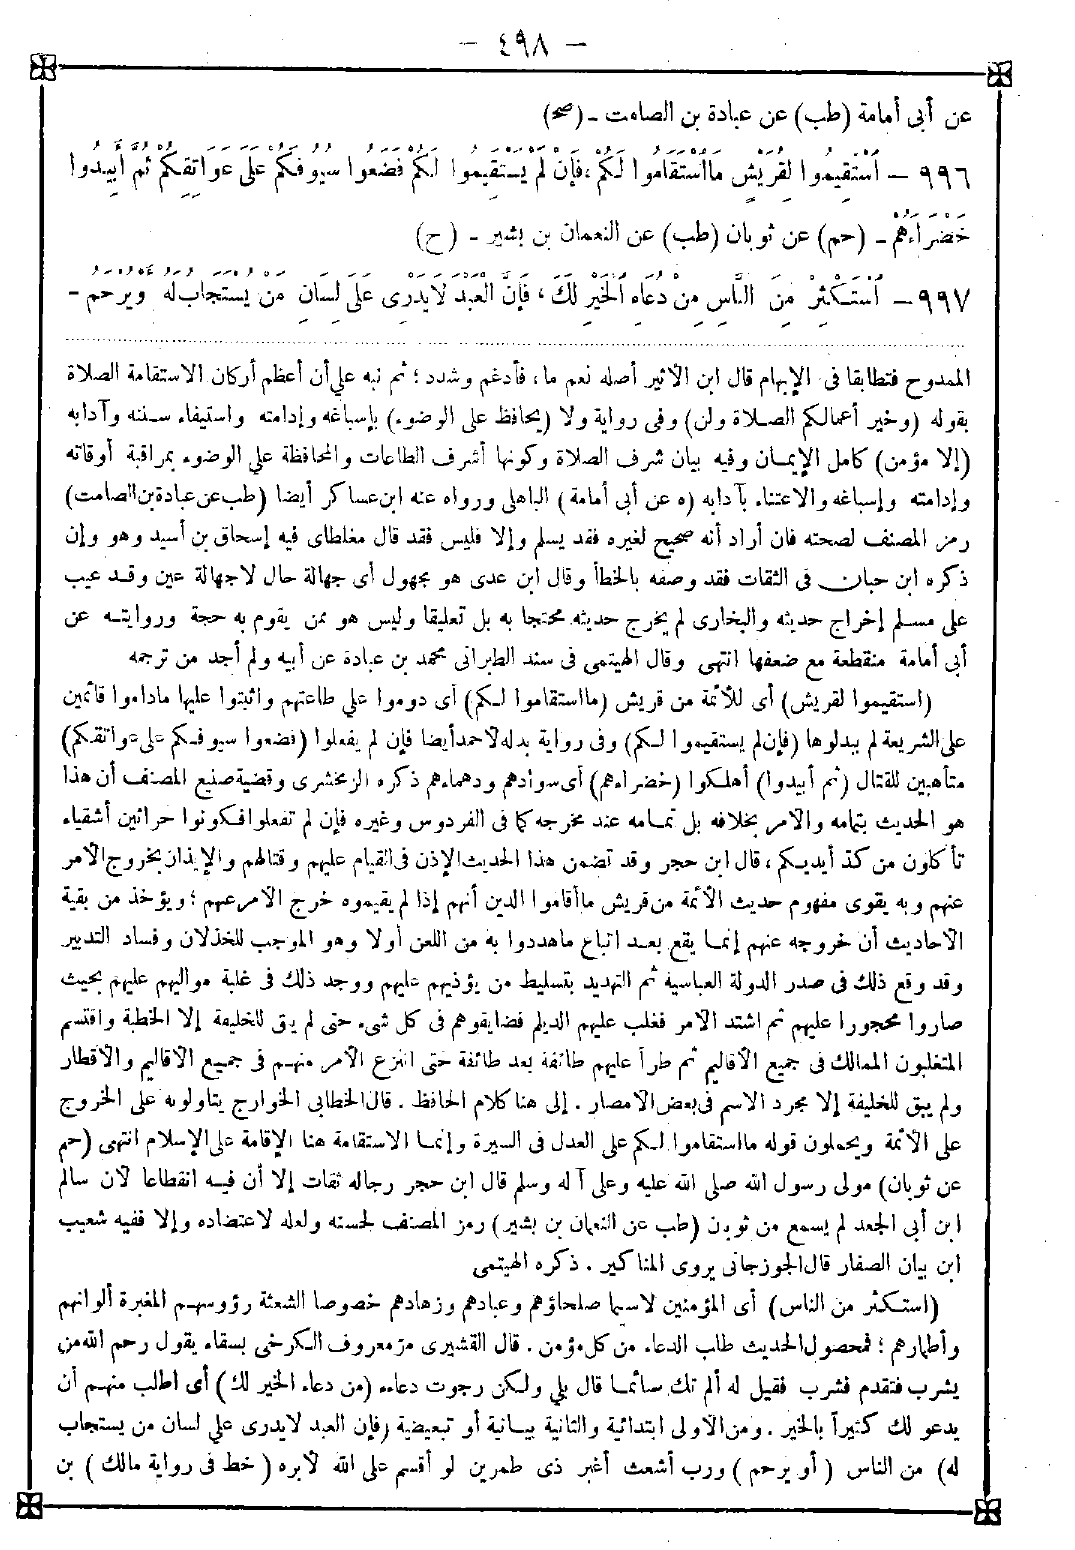 - ٤٩٨ -
عن أبى أمامة (طب) عن عبادة بن الصامت - (صح)
٩٩٦ - اَسْتَقِيمُوا لِقُرَيْشٍ مَا اسْتَقَامُوا لَكُمْ، فَإِنْ لَمْ يَسْتَقِيمُوا لَكُمْ فَضَعُوا سُيُوفَكُمْ عَلَى عَوَاتِقِكُمْ ثُمَّ أَبِيدُوا
خَضْرَاءَهُمْ - (حم) عن ثوبان (طب) عن النعمان بن بشير - (ح)
٩٩٧ - اَسْتَكْثِرْ مِنَ النَّاسِ مِنْ دُعَاءِ الْخَيْرِ لَكَ، فَإِنَّ الْعَبْدَ لَا يَدْرِى عَلَى لِسَانِ مَنْ يُسْتَجَابُ لَهُ ويُرْحَم -
الممدوح فتطابقا فى الإبهام قال ابن الأثير أصله نعم ما، فأدغم وشدد؛ ثم نبه على أن أعظم أركان الاستقامة الصلاة
بقوله (وخير أعمالكم الصلاة ولن) وفى رواية ولا (يحافظ على الوضوء) بإسباغه وإدامته واستيفاء سننه وآدابه
(إلا مؤمن) كامل الإيمان وفيه بيان شرف الصلاة وكونها أشرف الطاعات والمحافظة على الوضوء بمراقبة أوقاته
وإدامته وإسباغه والاعتناء بآدابه (ه عن أبى أمامة) الباهلى ورواه عنه ابن عساكر أيضا (طب عن عبادة بن الصامت)
رمز المصنف لصحته فان أراد أنه صحيح لغيره فقد يسلم وإلا فليس فقد قال مغلطاى فيه إسحاق بن أسيد وهو وإن
ذكره ابن حبان فى الثقات فقد وصفه بالخطأ وقال ابن عدى هو مجهول أى جهالة حال لا جهالة عين وقد عيب
على مسلم إخراج حديثه والبخارى لم يخرج حديثه محتجا به بل تعليقا وليس هو ممن يقوم به حجة وروايته عن
أبى أمامة منقطعة مع ضعفها انتهى وقال الهيتمى فى سند الطبرانى محمد بن عبادة عن أبيه ولم أجد من ترجمه
(استقيموا لقريش) أى للأئمة من قريش (ما استقاموا لكم) أى دوموا على طاعتهم واثبتوا عليها ماداموا قائمين
على الشريعة لم يبدلوها (فإن لم يستقيموا لكم) وفى رواية بدله لأحمد أيضا فإن لم يفعلوا (فضعوا سيوفكم على عواتقكم)
متأهبين للقتال (ثم أبيدوا) أهلكوا (خضراءهم) أى سوادهم ودهماءهم ذكره الزمخشرى وقضية صنيع المصنف أن هذا
هو الحديث بتمامه والأمر بخلافه بل تمامه عند مخرجه كما فى الفردوس وغيره فإن لم تفعلوا فكونوا حراثين أشقياء
تأكلون من كد أيديكم، قال ابن حجر وقد تضمن هذا الحديث الإذن فى القيام عليهم وقتالهم والإيذان بخروج الأمر
عنهم وبه يقوى مفهوم حديث الأئمة من قريش ما أقاموا الدين أنهم إذا لم يقيموه خرج الأمر عنهم؛ ويؤخذ من بقية
الأحاديث أن خروجه عنهم إنما يقع بعد اتباع ما هددوا به من اللعن أولا وهو الموجب للخذلان وفساد التدبير
وقد وقع ذلك فى صدر الدولة العباسية ثم التهديد بتسليط من يؤذيهم عليهم ووجد ذلك فى غلبة مواليهم عليهم بحيث
صاروا محجورا عليهم ثم اشتد الأمر فغلب عليهم الديلم فضايقوهم فى كل شىء حتى لم يبق للخليفة إلا الخطبة واقتسم
المتغلبون الممالك فى جميع الأقاليم ثم طرأ عليهم طائفة بعد طائفة حتى انتزع الأمر منهم فى جميع الأقاليم والأقطار
ولم يبق للخليفة إلا مجرد الاسم فى بعض الأمصار. إلى هنا كلام الحافظ. قال الخطابى الخوارج يتاولونه على الخروج
على الأئمة ويحملون قوله ما استقاموا لكم على العدل فى السيرة وإنما الاستقامة هنا الإقامة على الإسلام انتهى (حم
عن ثوبان) مولى رسول الله صلى الله عليه وعلى آله وسلم قال ابن حجر رجاله ثقات إلا أن فيه انقطاعا لأن سالم
ابن أبى الجعد لم يسمع من ثوبان (طب عن النعمان بن بشير) رمز المصنف لحسنه ولعله لاعتضاده وإلا ففيه شعيب
ابن بيان الصفار قال الجوزجانى يروى المناكير. ذكره الهيتمى
(استكثر من الناس) أى المؤمنين لاسيما صلحاؤهم وعبادهم وزهادهم خصوصا الشعثة رؤوسهم المغبرة ألوانهم
وأطمارهم؛ فمحصول الحديث طلب الدعاء من كل مؤمن. قال القشيرى مرّ معروف الكرخى بسقاء يقول رحم الله من
يشرب فتقدم فشرب فقيل له ألم تك صائما قال بلى ولكن رجوت دعاءه (من دعاء الخير لك) أى اطلب منهم أن
يدعو لك كثيراً بالخير. ومن الأولى ابتدائية والثانية بيانية أو تبعيضية (فإن العبد لا يدرى على لسان من يستجاب
له) من الناس (أو يرحم) ورب أشعث أغبر ذى طمرين لو أقسم على الله لأبره (خط فى رواية مالك) بن